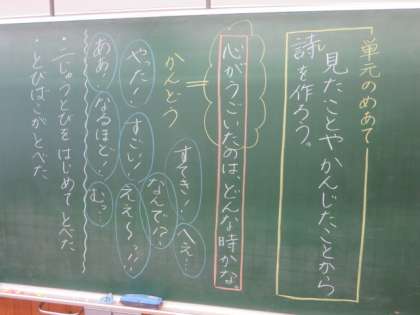 単元のめあて
見たことやかんじたことから
詩を作ろう。
心がうごいたのは、どんな時かな。
かんどう
すてき！
へえ…
なんで！？
やった！
すごい！
ええ〜っ！！
ああ！
なるほど！
むっ…
・二じゅうとびをはじめてとべた
・とびばこがとべた